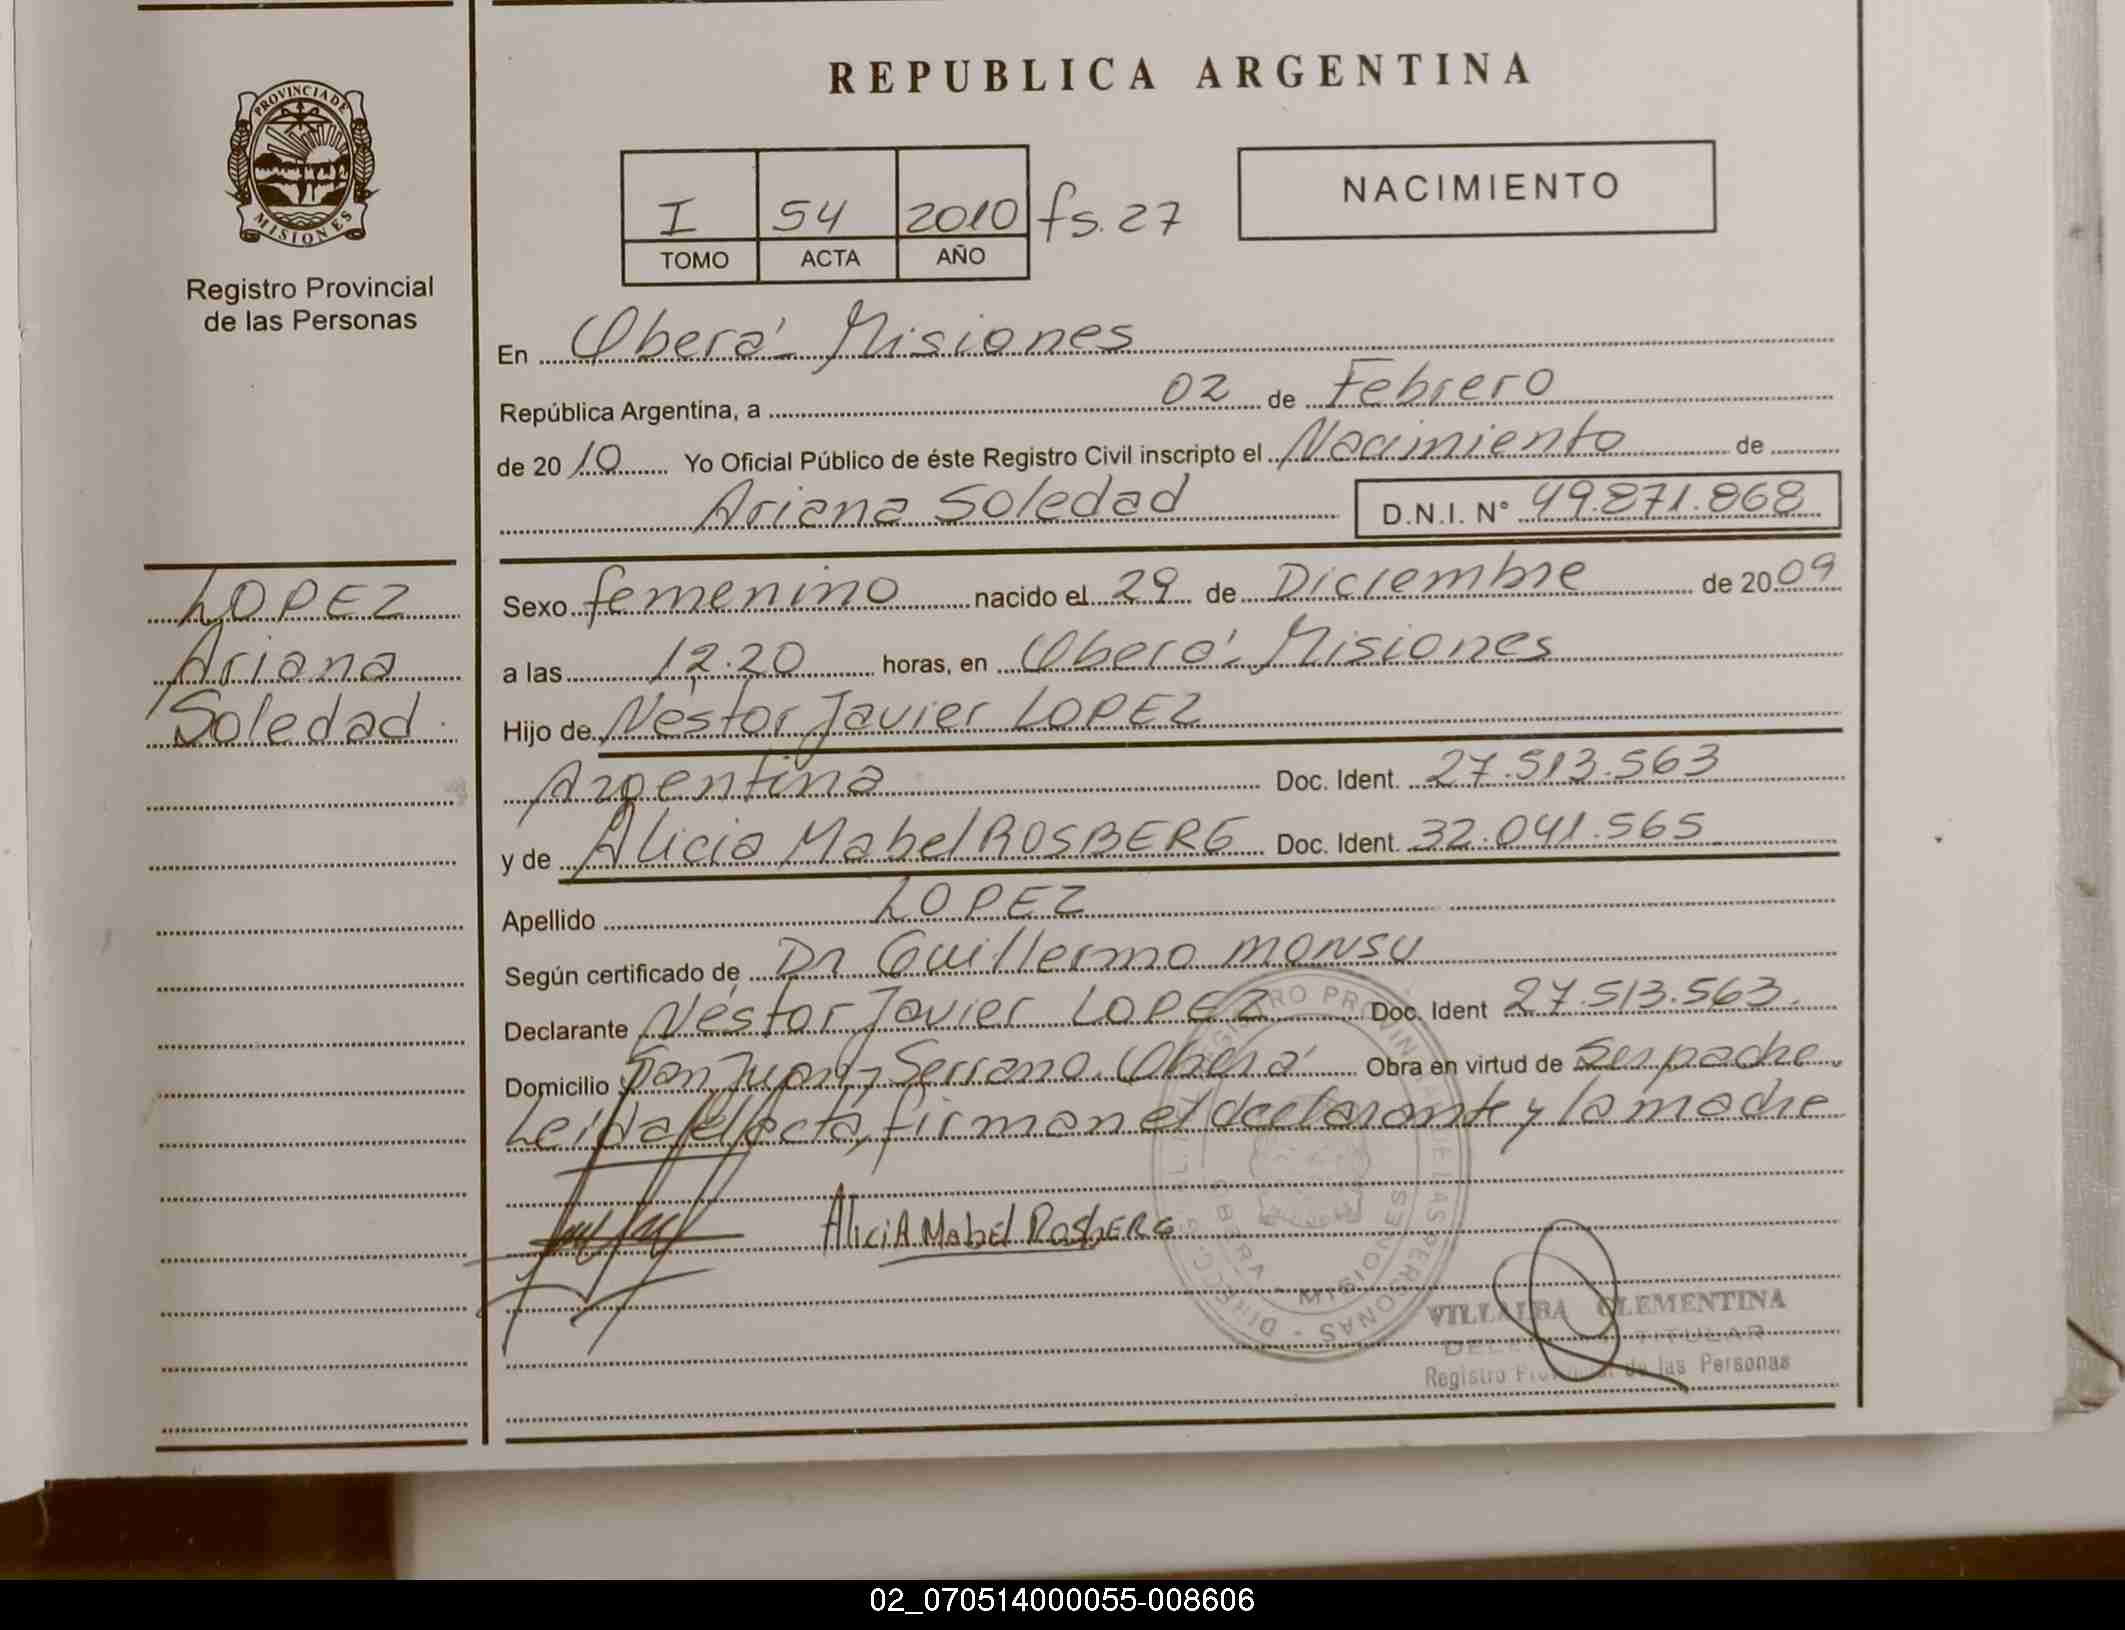 REPUBLICA ARGENTINA
PROVINCIA DE
MISIONES
Registro Provincial
de las Personas
I 54 2010 fs. 27
TOMO ACTA AÑO
NACIMIENTO
En Oberá - Misiones
República Argentina, a 02 de Febrero
de 2010 Yo Oficial Público de éste Registro Civil inscripto el Nacimiento de
Ariana Soledad D.N.I. N° 49.871.868
LOPEZ
Ariana
Soledad
Sexo femenino nacido el 29 de Diciembre de 2009
a las 12.20 horas, en Oberá - Misiones
Hijo de Néstor Javier LOPEZ
Argentina Doc. Ident. 27.513.563
y de Alicia Mabel ROSBERG Doc. Ident. 32.041.565
Apellido LOPEZ
Según certificado de Dr Guillermo MONSU
Declarante Néstor Javier LOPEZ Doc. Ident 27.513.563.
Domicilio San Juan y Serrano. Oberá Obra en virtud de Ser padre
Leída el acta, firman el declarante y la madre
Alicia Mabel Rosberg
REGISTRO PROVINCIAL DE LAS PERSONAS
OBERA - MISIONES
VILLALBA CLEMENTINA
TITULAR
Registro Provincial de las Personas
02_070514000055-008606